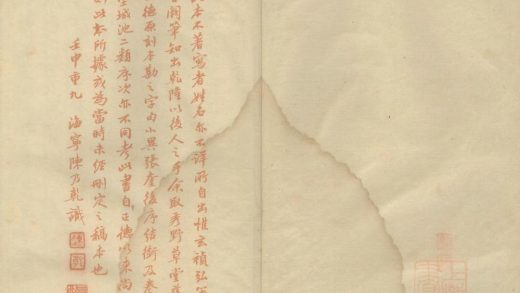 本不著寫者姓名亦不詳所自出惟玄禎弘
闕筆知出乾隆以後人之手余取秀野草堂
德原刻本勘之字句小異張奎後序結銜及卷
城池二類序次亦不同考此書自正德以來尚
此本所據或為當時未經刪定之稿本也
壬申重九 海寧陳乃乾識